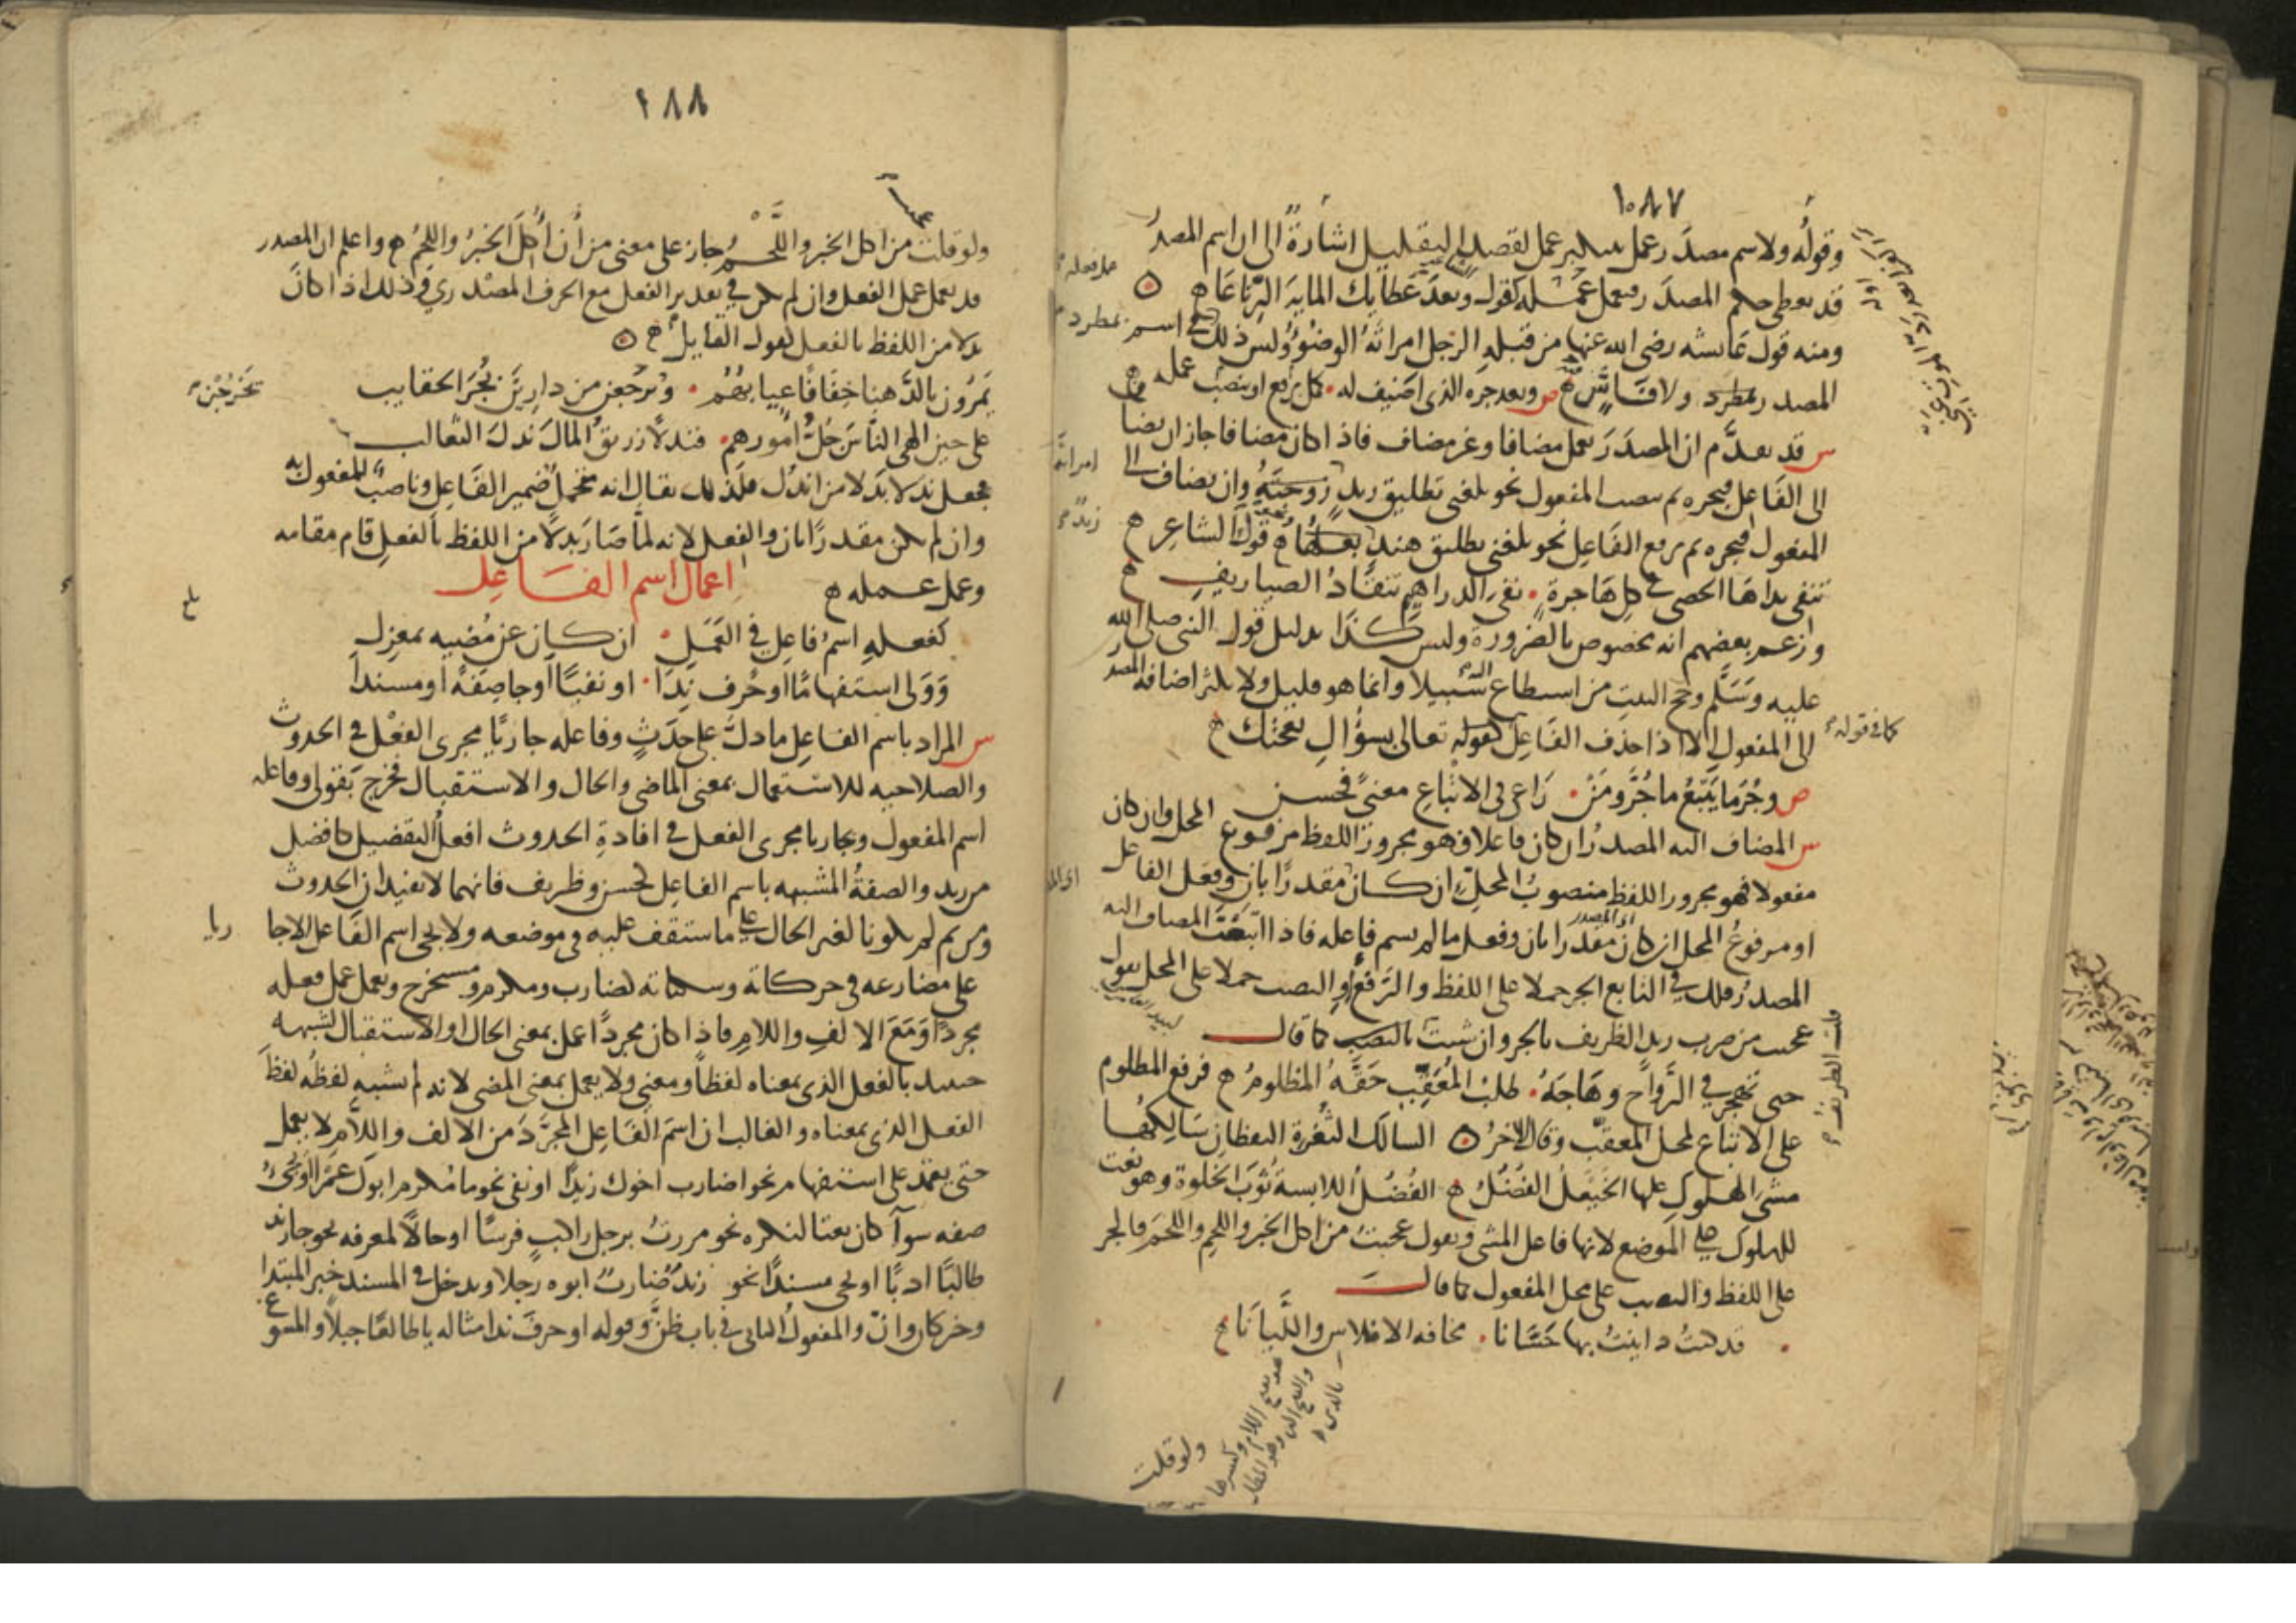 ١٠٨٧
وقوله ولاسم مصدر عمل بتنكير عمل لقصد التقليل اشارة الى ان اسم المصدر
قد يعطى حكم المصدر فيعمل عمله كقوله وبعد عطايك المايه الرتاعا
ومنه قول عايشه رضى الله عنها من قبلة الرجل امراته الوضوء وليس ذلك فى اسم
المصدر بمطرد ولا فاش ص وبعد جره الذى اضيف له كمل برفع او بنصب عمله
س قد تقدم ان المصدر يعمل مضافا وغير مضاف فاذا كان مضافا جاز ان يضاف
الى الفاعل فيجره ثم ينصب المفعول نحو بلغنى تطليق زيد زوجته وان يضاف الى
المفعول فيجره ثم يرفع الفاعل نحو بلغنى تطليق هند قول الشاعر
تنفى يداها الحصى فى كل هاجرة نفى الدراهم تنقاد الصياريف
وزعم بعضهم انه مخصوص بالضرورة وليس كذا بدليل قول النبى صلى الله
عليه وسلم وحج البيت من استطاع اليه سبيلا وانما هو قليل ولا يكثر اضافة المصدر
الى المفعول الا اذا حذف الفاعل كقوله تعالى بسؤال نعجتك
كما فى قوله
ص وجر ما يتبع ما جر ومن راعى فى الاتباع معنى فحسن
س المضاف اليه المصدر ان كان فاعلا فهو مجرور اللفظ مرفوع المحل وان كان
مفعولا فهو مجرور اللفظ منصوب المحل ان كان مقدرا بان وفعل الفاعل
او مرفوع المحل ان كان مقدرا بان وفعل ما لم يسم فاعله فاذا اتبعت المضاف اليه
المصدر فلك فى التابع الجر حملا على اللفظ والرفع او النصب حملا على المحل تقول
عجبت من ضرب زيد الظريف بالجر وان شئت بالنصب كما قال
حتى تهجر فى الرواح وهاجه طلب المعقب حقه المظلوم فرفع المظلوم
على الاتباع لمحل المعقب وقال الاخر السالك الثغرة اليقظان سالكها
مشى الهلوك عليها الخيعل الفضل الفضل اللابسة ثوب الخلوة وهو نعت
للهلوك على الموضع لانها فاعل المشى وتقول عجبت من اكل الخبز واللحم واللحم فالجر
على اللفظ والنصب على محل المفعول كما قال
قد كنت داينت بها حسانا مخافه الافلاس والليانا
ولو قلت
١٨٨
ولو قلت من اكل الخبز واللحم جاز على معنى من ان اكل الخبز واللحم واعلم ان المصدر
قد يعمل عمل الفعل وان لم يكن فى تقدير الفعل مع الحرف المصدرى وذلك اذا كان
بدلا من اللفظ بالفعل كقول القايل
يمرون بالدهنا خفافا عيابهم ويرجعن من دارين بجر الحقايب
على حين الهى الناس جل امورهم فندلا زريق المال ندل الثعالب
فجعل ندلا بدلا من اندل فلذلك يقال انه متحمل ضمير الفاعل وناصب للمفعول به
وان لم يكن مقدرا بان والفعل لانه لما صار بدلا من اللفظ بالفعل قام مقامه
وعمل عمله
اعمال اسم الفاعل
كفعله اسم فاعل فى العمل ان كان عن مضيه بمعزل
وولى استفهاما او حرف ندا او نفيا او جا صفة او مسندا
س المراد باسم الفاعل ما دل على حدث وفاعله جاريا مجرى الفعل فى الحدوث
والصلاحيه للاستعمال بمعنى الماضى والحال والاستقبال فخرج بقولى وفاعله
اسم المفعول وبجاريا مجرى الفعل فى افادة الحدوث افعل التفضيل كافضل
من زيد والصفة المشبهه باسم الفاعل كحسن وظريف فانهما لا يفيدان الحدوث
ومن ثم لم يكونا لغير الحال على ما ستقف عليه فى موضعه ولا يجى اسم الفاعل الا جاريا
على مضارعه فى حركاته وسكناته كضارب ومكرم ومستخرج ويعمل عمل فعله
مجردا ومع الالف واللام فاذا كان مجردا عمل بمعنى الحال او الاستقبال لشبهه
حينيذ بالفعل الذى بمعناه لفظا ومعنى ولا يعمل بمعنى المضى لانه لم يشبه لفظه لفظ
الفعل الذى بمعناه والغالب ان اسم الفاعل المجرد من الالف واللام لا يعمل
حتى يعتمد على استفهام نحو اضارب اخوك زيدا او نفى نحو ما مكرم ابوك عمرا او يجى
صفه سوآ كان نعتا لنكره نحو مررت برجل راكب فرسا او حالا لمعرفه نحو جا زيد
طالبا ادبا او يجى مسندا نحو زيد ضارب ابوه رجلا ويدخل فى المسند خبر المبتدا
وخبر كان وان والمفعول الثانى فى باب ظن وقوله او حرف ندا مثاله يا طالعا جبلا والمسوغ